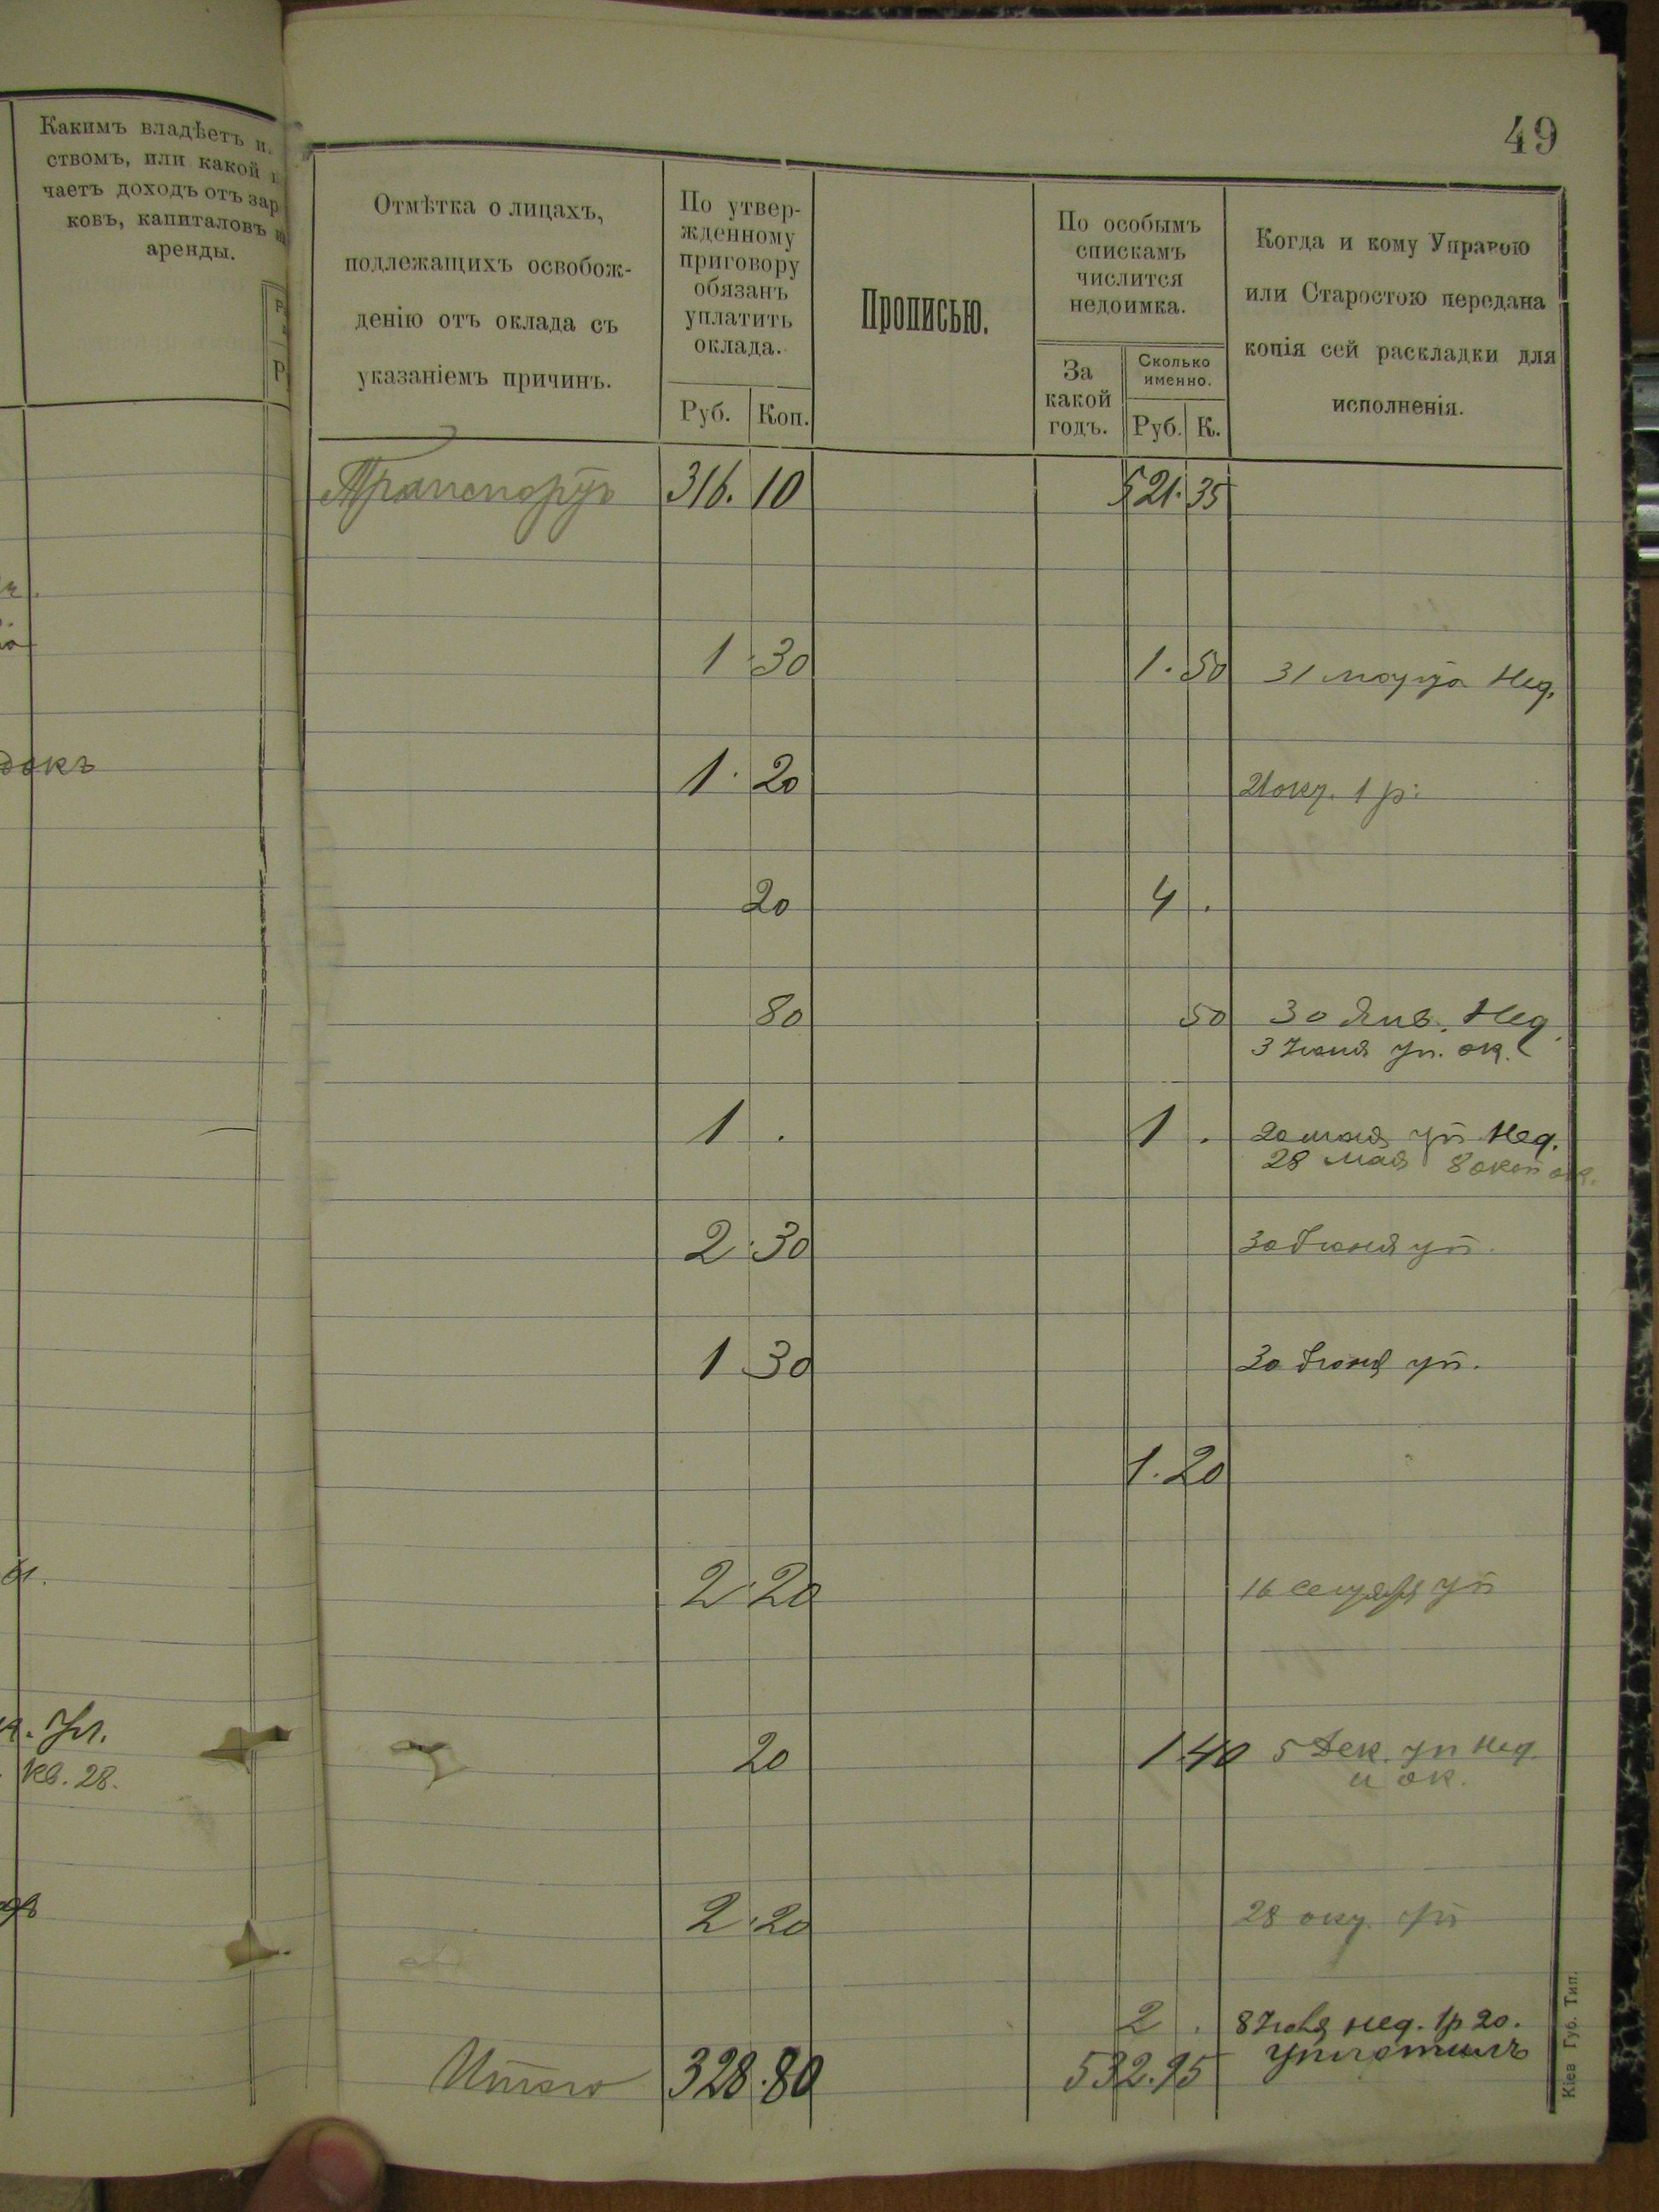 49
Какимъ владѣетъ и
ствомъ, или какой
чаетъ доходъ отъ зар
ковъ, капиталовъ
аренды.
Р
докъ
Кв. 28.
Отмѣтка о лицахъ,
подлежащихъ освобож-
денію отъ оклада съ
указаніемъ причинъ.
По утвер-
жденному
приговору
обязанъ
уплатить
оклада.
Руб. Коп.
Прописью.
По особымъ
спискамъ
числится
недоимка.
За
какой
годъ.
Сколько
именно.
Руб. К.
Когда и кому Управою
или Старостою передана
копія сей раскладки для
исполненія.
Транспортъ 316. 10 521. 35
1 30 1. 50 31 марта Нед.
1. 20 21 окт. 1 р.
20 4 .
80 50 30 Янв. Нед.
3 Іюня уп. ок.
1 . 1 . 20 мая уп Нед.
28 мая 8 окт ок.
2. 30 30 Іюня уп.
1 30 30 Іюня уп.
1. 20
2. 20 16 сентября уп
20 1 40 5 Дек. уп Нед.
и ок.
2. 20 28 окт. уп
2 . 8 Іюля нед. 1 р 20.
уплатилъ
Итого 328. 80 532. 95
Кіев Губ. Тип.